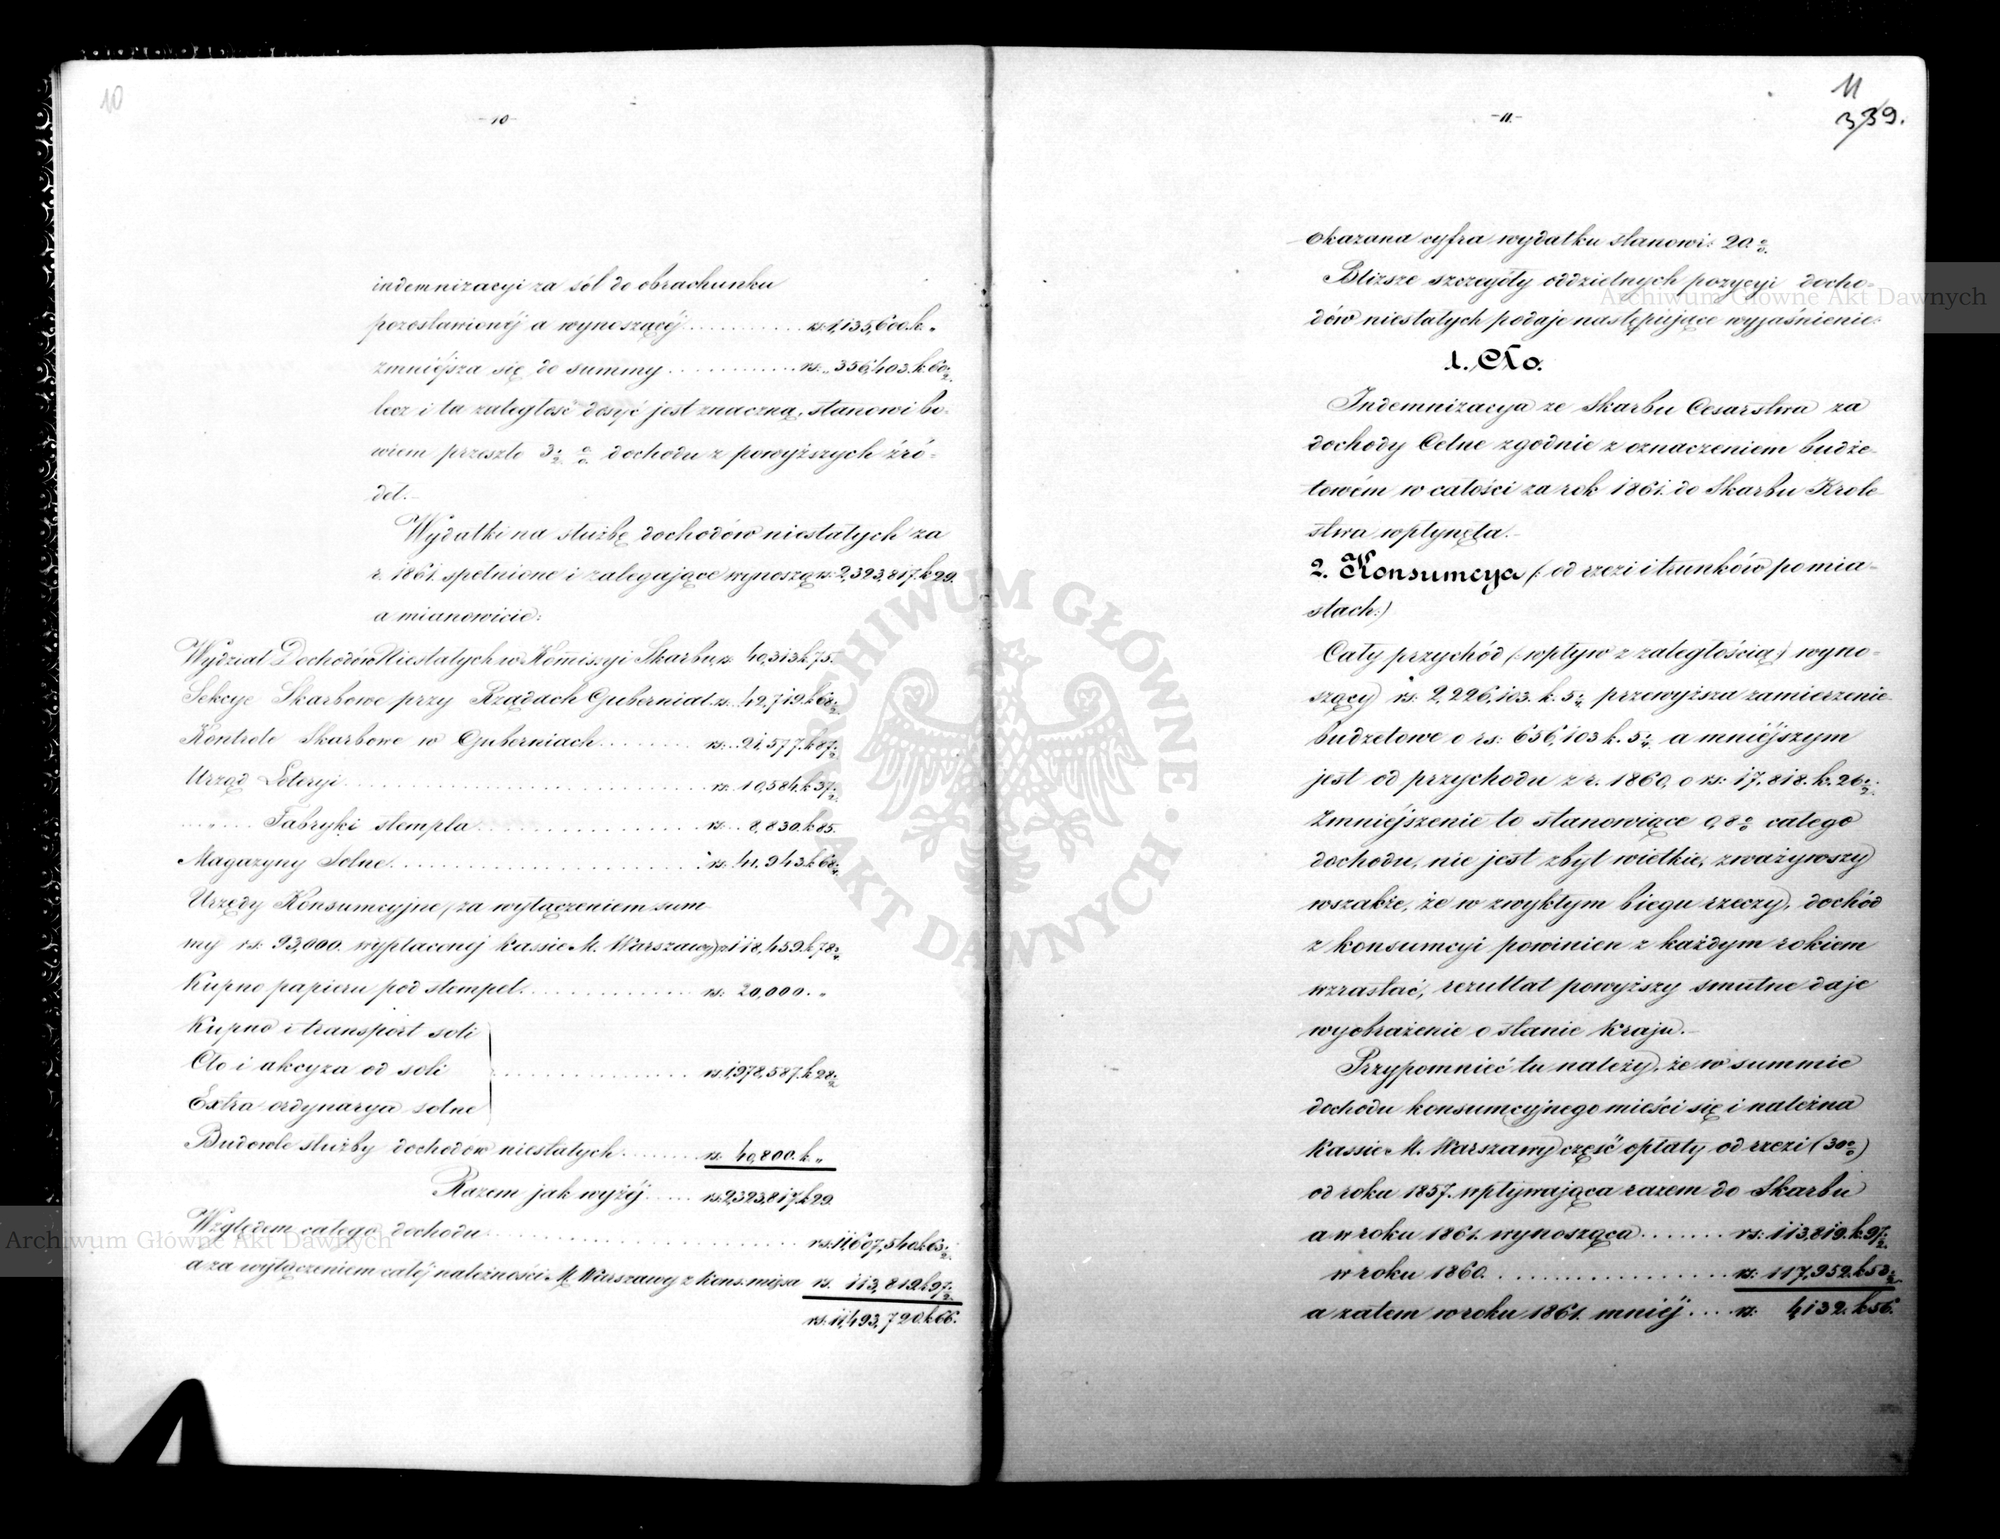 10
-10-
indemnizacyi za sól do obrachunku
pozostawionéj a wynoszącéj . . . . . . . . . . rs: 1,135,600. k. „
zmniéjsza się do summy . . . . . . . . . . rs: „ 356,403. k. 60 1/2.
lecz i ta zaległość dosyć jest znaczną, stanowi bo-
wiem przeszło 3 1/2 % dochodu z powyższych źró-
deł.-
Wydatki na służbę dochodów niestałych za
r. 1861. spełnione i zalegające wynoszą rs: 2,323,817. k. 29.
a mianowicie:
Wydział Dochodów Niestałych w Kommissyi Skarbu rs. 40,313. k. 75.
Sekcye Skarbowe przy Rządach Gubernial. rs. 42,719. k. 68 1/2
Kontrole Skarbowe w Guberniach . . . . . . . rs: . 21,577. k. 87 1/2
Urząd Loteryi . . . . . . . . . . rs: 10,584. k. 37 1/2
. . „ . . . Fabryki stempla . . . . . . . . . . rs . . 8,830. k. 85.
Magazyny Solne . . . . . . . . . . rs. 41,943. k. 68 1/4
Urzędy Konsumcyjne (za wyłączeniem sum-
my rs: 93,000. wypłaconéj kassie M. Warszawy) rs. 118,459. k. 78 3/4
Kupno papieru pod stempel . . . . . . . . . . rs: 20,000. „
Kupno i transport soli
Cło i akcyza od soli . . . . . . . . . . rs. 1,978,587. k. 28 1/2
Extra ordynarya solne
Budowle służby dochodów niestałych . . . . . . . rs. 40,800. k. „
Razem jak wyżéj . . . . . rs. 2,323,817. k. 29.
Względem całego dochodu . . . . . . . . . . rs: 11,607,540. k. 63 1/2
a za wyłączeniem całéj należności M. Warszawy z kons. mięsa rs. 113,819. k. 97 1/2.
rs: 11,493,720. k. 66.
11
339.
-11.-
okazana cyfra wydatku stanowi: 20. %.
Bliższe szczegóły oddzielnych pozycyi docho-
dów niestałych podaje następujące wyjaśnienie:
1. Cło.
Indemnizacya ze Skarbu Cesarstwa za
dochody Celne zgodnie z oznaczeniem budże-
towém w całości za rok 1861. do Skarbu Króle-
stwa wpłynęła.-
2. Konsumcya (: od rzezi i trunków po mia-
stach:)
Cały przychód (: wpływ z zaległością) wyno-
szący rs: 2,226,103. k. 5 1/4, przewyższa zamierzenie
budżetowe o rs: 656,103 k. 5 1/4, a mniéjszym
jest od przychodu z r. 1860, o rs: 17,818. k. 26 1/2.
Zmniéjszenie to stanowiące 0,8 % całego
dochodu, nie jest zbyt wielkie, zważywszy
wszakże, że w zwykłym biegu rzeczy, dochód
z konsumcyi powinien z każdym rokiem
wzrastać, rezultat powyższy smutne daje
wyobrażenie o stanie kraju.-
Przypomnieć tu należy, że w summie
dochodu konsumcyjnego mieści się i należna
kassie M. Warszawy część opłaty od rzezi (30 %)
od roku 1857. wpływająca razem do Skarbu
a w roku 1861. wynosząca . . . . . . . rs: 113,819. k. 97 1/2.
w roku 1860. . . . . . . . . . . rs: 117,952. k. 53 1/2.
a zatem w roku 1861. mniéj . . . . rs: 4,132. k. 56.
Archiwum Główne Akt Dawnych
Archiwum Główne Akt Dawnych
ARCHIWUM GŁÓWNE AKT DAWNYCH